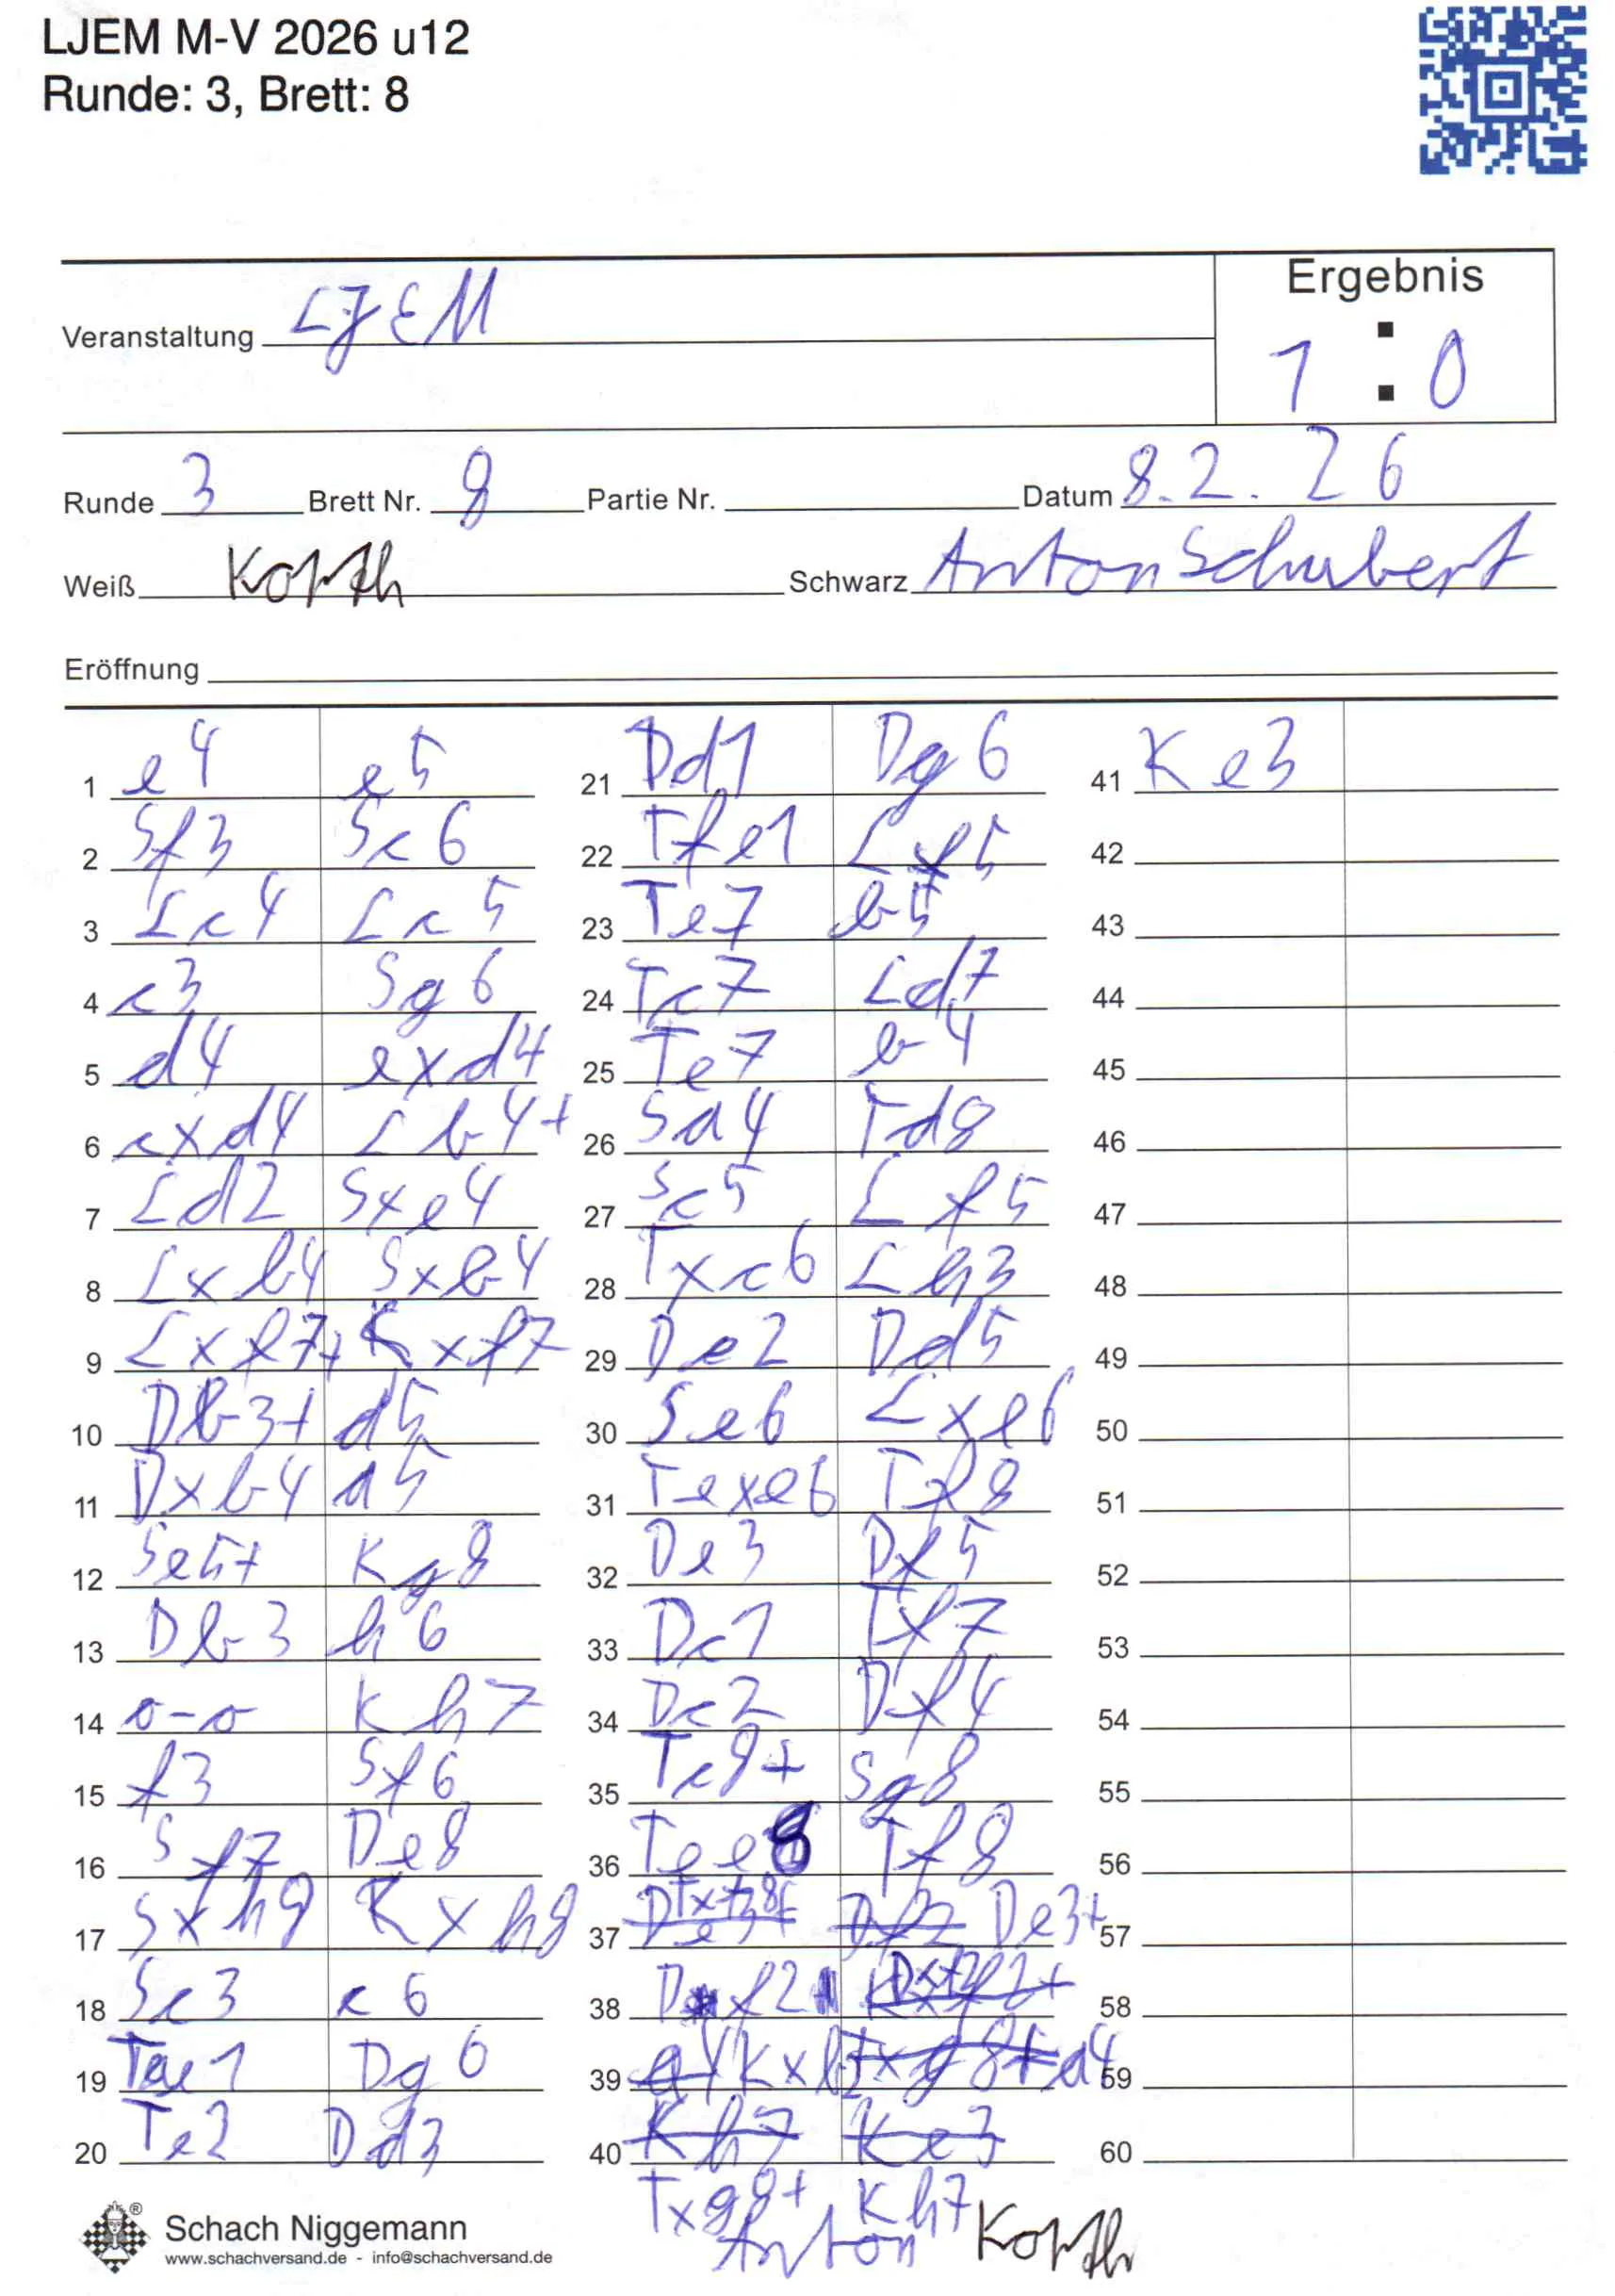 LJEM M-V 2026 u12
Runde: 3, Brett: 8
Ergebnis
Veranstaltung LJEM
1 : 0
Runde 3 Brett Nr. 8 Partie Nr. Datum 8.2.26
Weiß Schwarz Anton Schubert
Eröffnung
1 e4 e5
2 Sf3 Sc6
3 Lc4 Lc5
4 c3 Sg6
5 d4 exd4
6 cxd4 Lb4+
7 Ld2 Sxe4
8 Lxb4 Sxb4
9 Lxf7+ Kxf7
10 Db3+ d5
11 Dxb4 a5
12 Se5+ Kg8
13 Db3 h6
14 o-o Kh7
15 f3 Sf6
16 Sf7 De8
17 Sxh8 Kxh8
18 Sc3 c6
19 Tae1 Dg6
20 Te2 Dd3
21 Dd1 Dg6
22 Tfe1 Lf5
23 Te7 b5
24 Tc7 Ld7
25 Te7 b4
26 Sa4 Td8
27 Sc5 Lf5
28 Txc6 Lh3
29 De2 Dd5
30 Se6 Lxe6
31 Texe6 Tf8
32 De3 Df5
33 Dc1 Tf7
34 Dc2 Df4
35 Tc8+ Sg8
36 Tee8 Tf8
37 Txf8 De3+
38 Df2
39 a4
40 Kh7 Ke3
Txg8+ Kh7
Anton
41 Ke3
42
43
44
45
46
47
48
49
50
51
52
53
54
55
56
57
58
59
60
Schach Niggemann
www.schachversand.de - info@schachversand.de